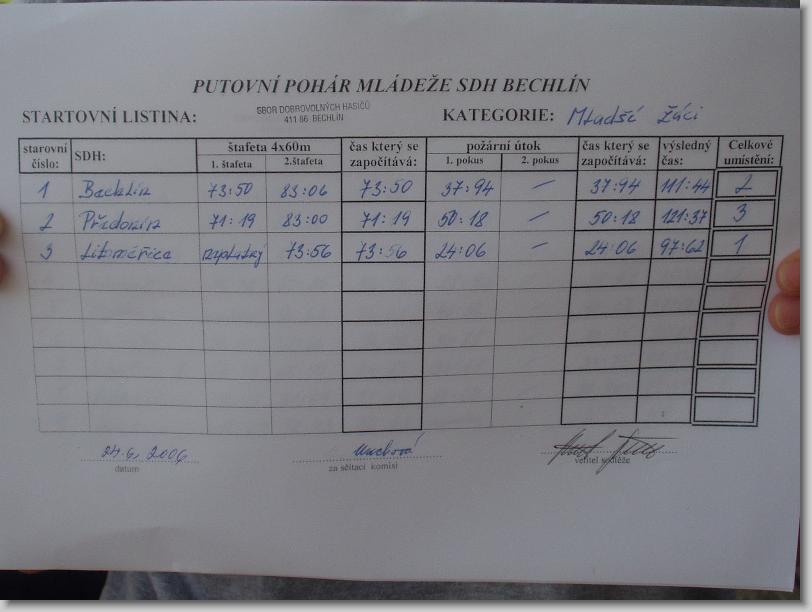 PUTOVNÍ POHÁR MLÁDEŽE SDH BECHLÍN
STARTOVNÍ LISTINA: SBOR DOBROVOLNÝCH HASIČŮ KATEGORIE: Mladší žáci
411 86 BECHLÍN
starovní SDH: štafeta 4x60m čas který se požární útok čas který se výsledný Celkové
číslo: 1. štafeta 2.štafeta započítává: 1. pokus 2. pokus započítává: čas: umístění:
1 Bechlín 73:50 83:06 73:50 37:94 — 37:94 111:44 2
2 Předonín 71:19 83:00 71:19 50:18 — 50:18 121:37 3
3 Litoměřice neplatný 73:56 73:56 24:06 — 24:06 97:62 1
24.6. 2006
datum za sčítací komisi velitel soutěže